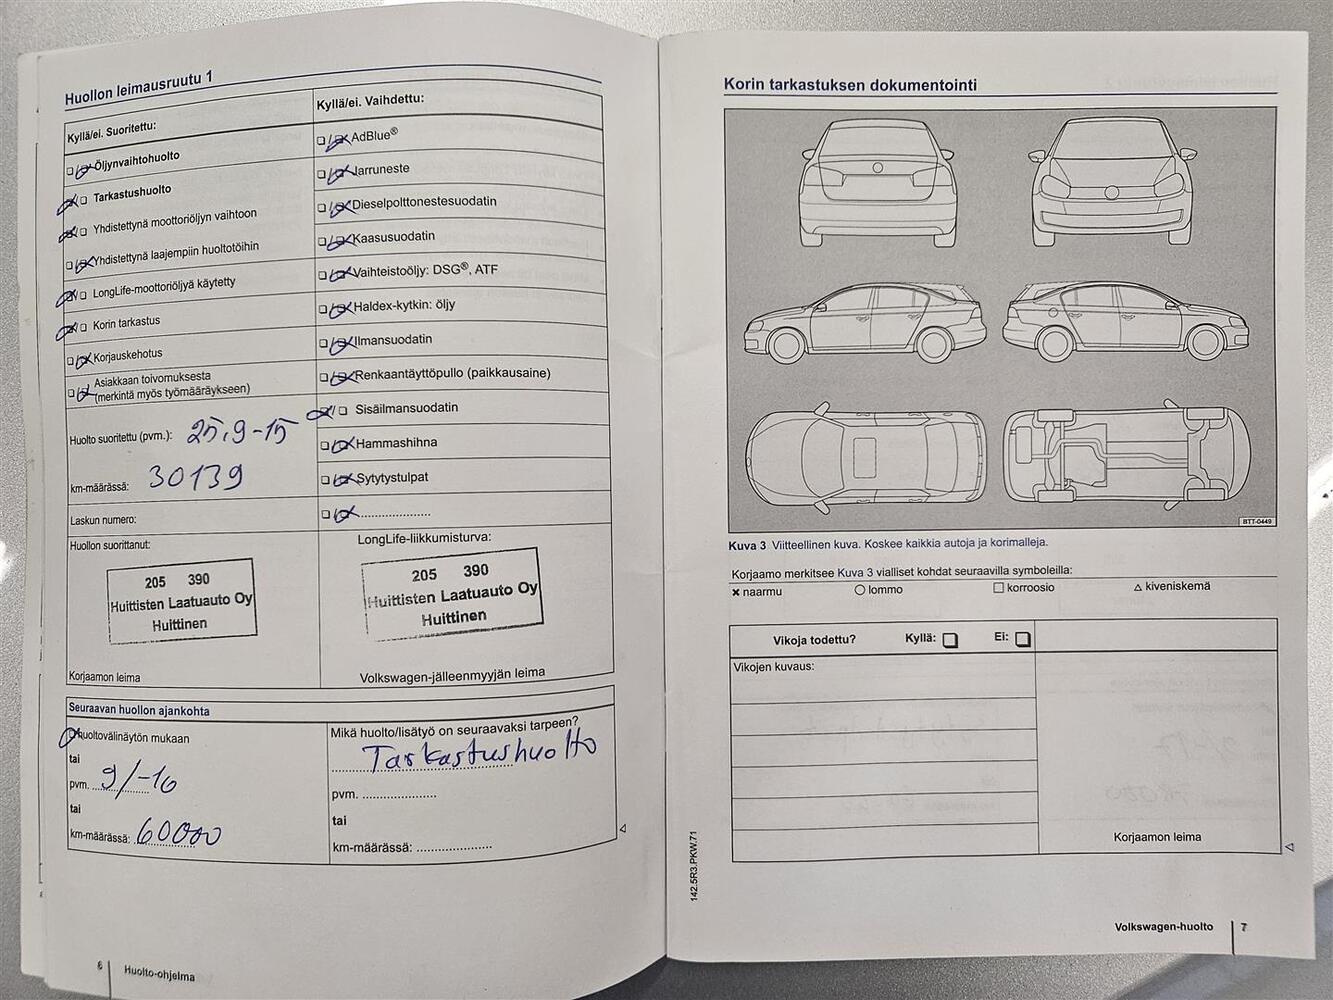 Huollon leimausruutu 1
Kyllä/ei. Suoritettu:
Öljynvaihtohuolto
Tarkastushuolto
Yhdistettynä moottoriöljyn vaihtoon
Yhdistettynä laajempiin huoltotöihin
LongLife-moottoriöljyä käytetty
Korin tarkastus
Korjauskehotus
Asiakkaan toivomuksesta
(merkintä myös työmääräykseen)
Huolto suoritettu (pvm.): 25.9-15
km-määrässä: 30139
Laskun numero:
Huollon suorittanut:
205 390
Huittisten Laatuauto Oy
Huittinen
Korjaamon leima
Kyllä/ei. Vaihdettu:
AdBlue®
Jarruneste
Dieselpolttonestesuodatin
Kaasusuodatin
Vaihteistoöljy: DSG®, ATF
Haldex-kytkin: öljy
Ilmansuodatin
Renkaantäyttöpullo (paikkausaine)
Sisäilmansuodatin
Hammashihna
Sytytystulpat
....................
LongLife-liikkumisturva:
205 390
Huittisten Laatuauto Oy
Huittinen
Volkswagen-jälleenmyyjän leima
Seuraavan huollon ajankohta
Huoltovälinäytön mukaan
tai
pvm. 9/-16
tai
km-määrässä: 60000
Mikä huolto/lisätyö on seuraavaksi tarpeen?
Tarkastushuolto
pvm. ....................
tai
km-määrässä: ....................
6 Huolto-ohjelma
Korin tarkastuksen dokumentointi
BTT-0449
Kuva 3 Viitteellinen kuva. Koskee kaikkia autoja ja korimalleja.
Korjaamo merkitsee Kuva 3 vialliset kohdat seuraavilla symboleilla:
✕ naarmu ○ lommo □ korroosio △ kiveniskemä
Vikoja todettu? Kyllä: Ei:
Vikojen kuvaus:
Korjaamon leima
142.5R3.PKW.71
Volkswagen-huolto 7